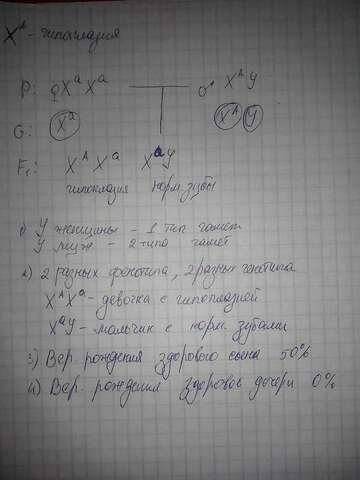 X^A - гипоплазия
P: ♀ X^a X^a ♂ X^A Y
G: X^a X^A Y
F₁: X^A X^a X^a Y
гипоплазия норм. зубы
1) У женщины - 1 тип гамет
У мужч - 2 типа гамет
2) 2 разных фенотипа, 2 разных генотипа
X^A X^a - девочка с гипоплазией
X^a Y - мальчик с норм. зубами
3) Вер. рождения здорового сына 50%
4) Вер. рождения здоровое дочери 0%